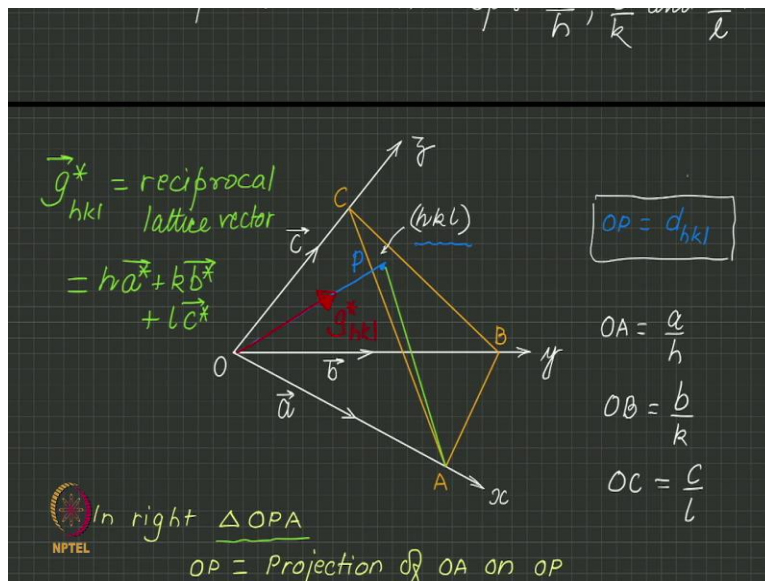 h, k and l
g⃗*hkl = reciprocal
lattice vector
= ha⃗* + kb⃗*
+ lc⃗*
z
C
c⃗
(hkl)
P
g*hkl
O
b⃗
B
y
a⃗
A
x
OP = dhkl
OA = a/h
OB = b/k
OC = c/l
In right △OPA
OP = Projection of OA on OP
NPTEL